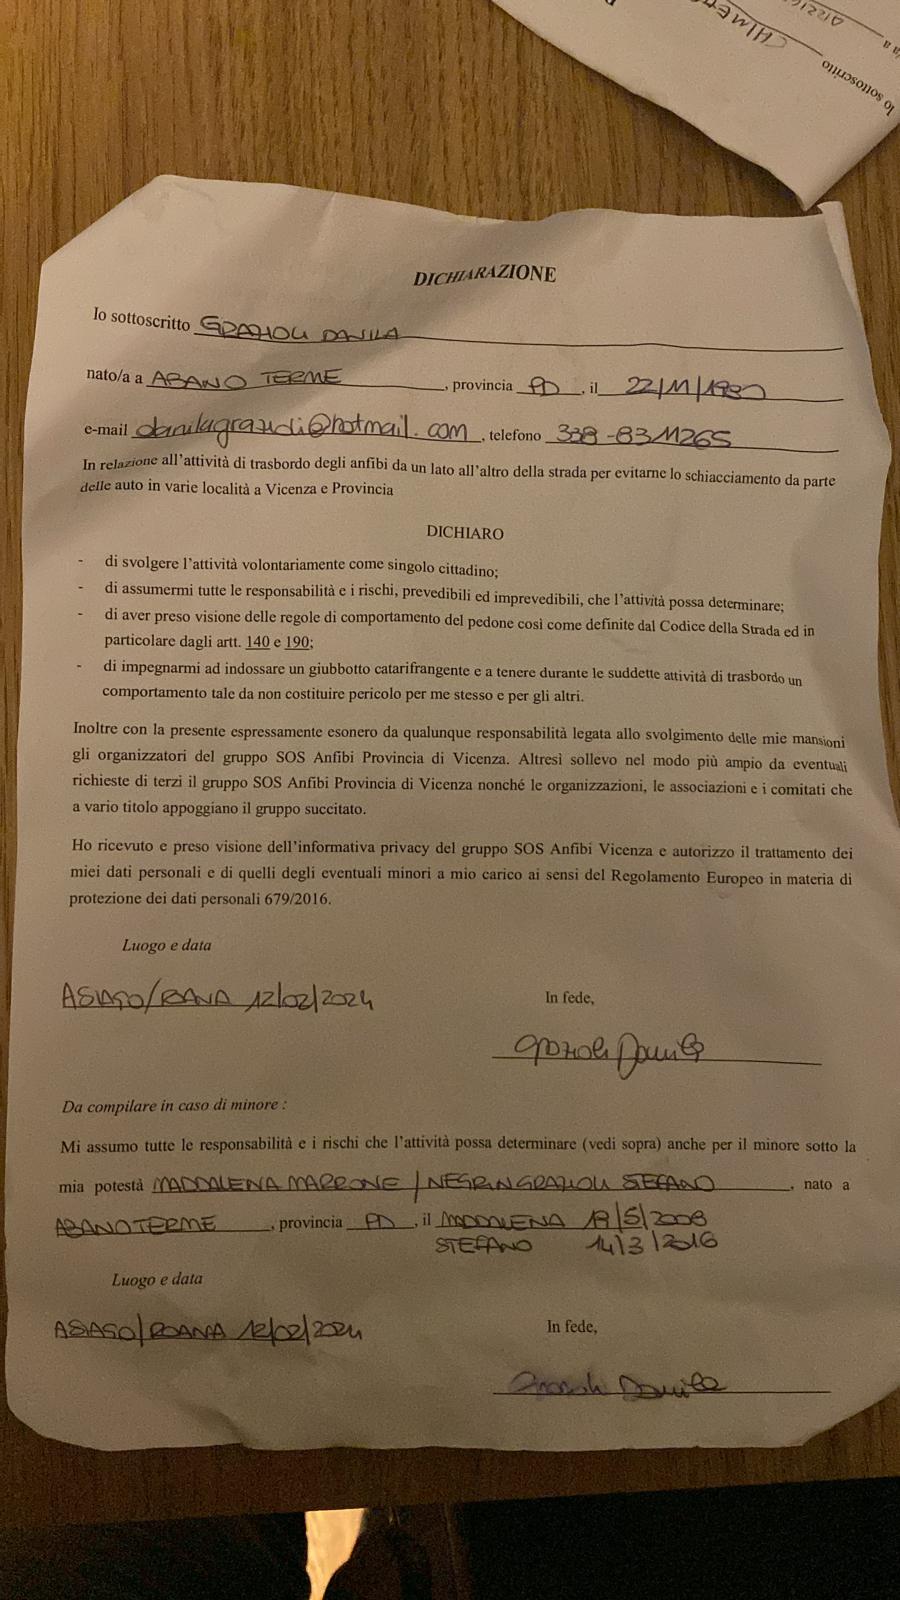 Io sottoscritto
CHIMET
DICHIARAZIONE
Io sottoscritto GRAZIOLI DANILA
nato/a a ABANO TERME, provincia PD, il 22/11/1980
e-mail danilagrazioli@hotmail.com, telefono 338-8311265
In relazione all'attività di trasbordo degli anfibi da un lato all'altro della strada per evitarne lo schiacciamento da parte
delle auto in varie località a Vicenza e Provincia
DICHIARO
- di svolgere l'attività volontariamente come singolo cittadino;
- di assumermi tutte le responsabilità e i rischi, prevedibili ed imprevedibili, che l'attività possa determinare;
- di aver preso visione delle regole di comportamento del pedone così come definite dal Codice della Strada ed in
particolare dagli artt. 140 e 190;
- di impegnarmi ad indossare un giubbotto catarifrangente e a tenere durante le suddette attività di trasbordo un
comportamento tale da non costituire pericolo per me stesso e per gli altri.
Inoltre con la presente espressamente esonero da qualunque responsabilità legata allo svolgimento delle mie mansioni
gli organizzatori del gruppo SOS Anfibi Provincia di Vicenza. Altresì sollevo nel modo più ampio da eventuali
richieste di terzi il gruppo SOS Anfibi Provincia di Vicenza nonché le organizzazioni, le associazioni e i comitati che
a vario titolo appoggiano il gruppo succitato.
Ho ricevuto e preso visione dell'informativa privacy del gruppo SOS Anfibi Vicenza e autorizzo il trattamento dei
miei dati personali e di quelli degli eventuali minori a mio carico ai sensi del Regolamento Europeo in materia di
protezione dei dati personali 679/2016.
Luogo e data
ASIAGO/ROANA 12/02/2024
In fede,
Grazioli Danila
Da compilare in caso di minore :
Mi assumo tutte le responsabilità e i rischi che l'attività possa determinare (vedi sopra) anche per il minore sotto la
mia potestà MADDALENA MARRONE / NEGRIN GRAZIOLI STEFANO, nato a
ABANO TERME, provincia PD, il MADDALENA 19/5/2008
STEFANO 14/3/2016
Luogo e data
ASIAGO/ROANA 12/02/2024
In fede,
Grazioli Danila